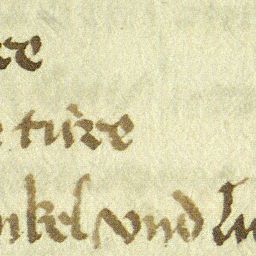 re
e türe
nkel vnd lu